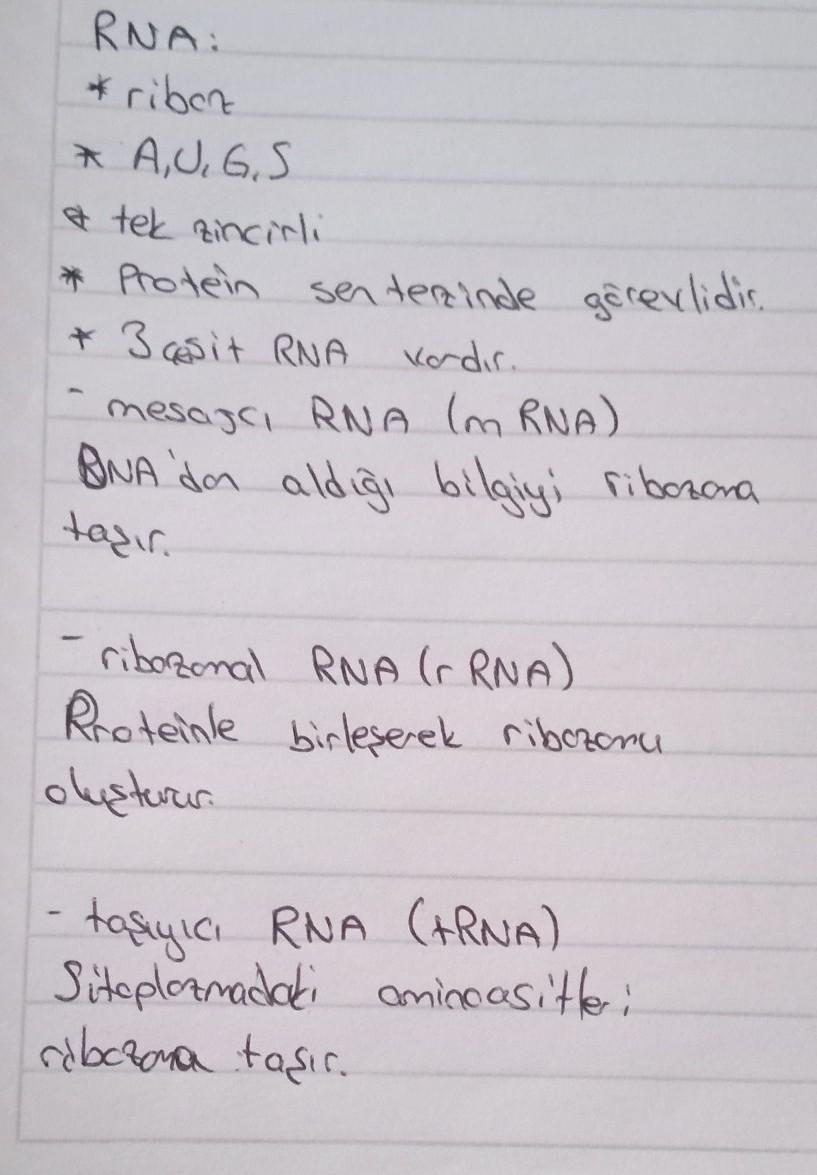 RNA:
* riboz
* A, U, G, S
* tek zincirli
* Protein sentezinde görevlidir.
* 3 çeşit RNA vardır.
- mesajcı RNA (mRNA)
DNA'dan aldığı bilgiyi ribozoma
taşır.
- ribozomal RNA (rRNA)
Proteinle birleşerek ribozomu
oluşturur.
- taşıyıcı RNA (tRNA)
Sitoplazmadaki aminoasitleri
ribozoma taşır.